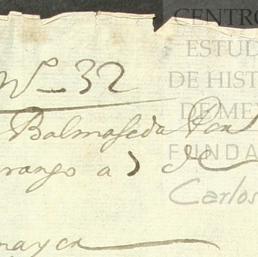 Nº 32
Balmaseda
rango a 7 de
CENTRO
ESTUD
DE HIST
DE ME
FUNDA
Carlos